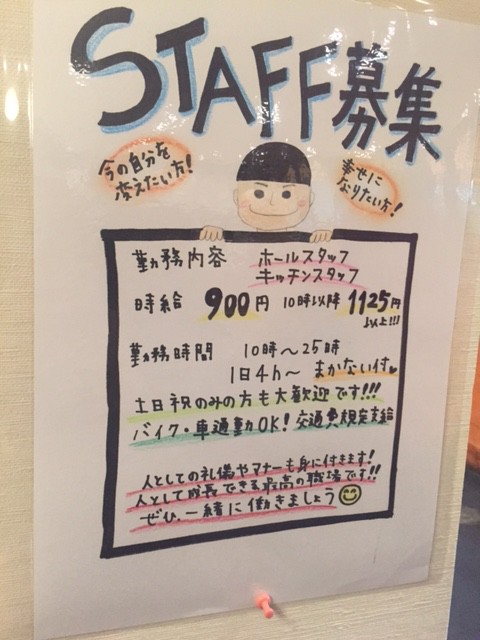 STAFF募集
今の自分を
変えたい方!
幸せに
なりたい方!
勤務内容 ホールスタッフ
キッチンスタッフ
時給 900円 10時以降 1125円
以上!!!
勤務時間 10時~25時
1日4h~ まかない付
土日祝のみの方も大歓迎です!!!
バイク・車通勤OK! 交通費規定支給
人としての礼儀やマナーも身に付きます!
人として成長できる最高の職場です!!
ぜひ、一緒に働きましょう